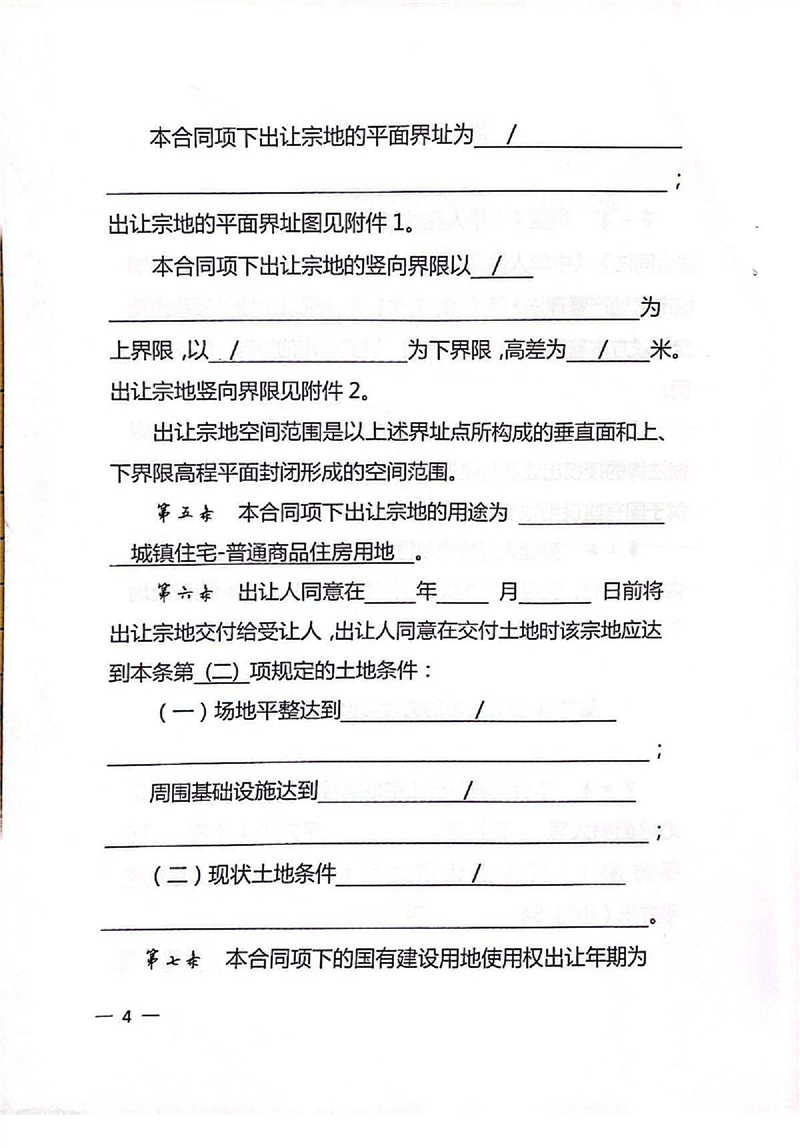 本合同项下出让宗地的平面界址为 /
；
出让宗地的平面界址图见附件1。
本合同项下出让宗地的竖向界限以 /
为
上界限,以 / 为下界限,高差为 / 米。
出让宗地竖向界限见附件2。
出让宗地空间范围是以上述界址点所构成的垂直面和上、
下界限高程平面封闭形成的空间范围。
第五条 本合同项下出让宗地的用途为
城镇住宅-普通商品住房用地 。
第六条 出让人同意在 年 月 日前将
出让宗地交付给受让人,出让人同意在交付土地时该宗地应达
到本条第 (二) 项规定的土地条件：
（一）场地平整达到 /
；
周围基础设施达到 /
；
（二）现状土地条件 /
。
第七条 本合同项下的国有建设用地使用权出让年期为
— 4 —